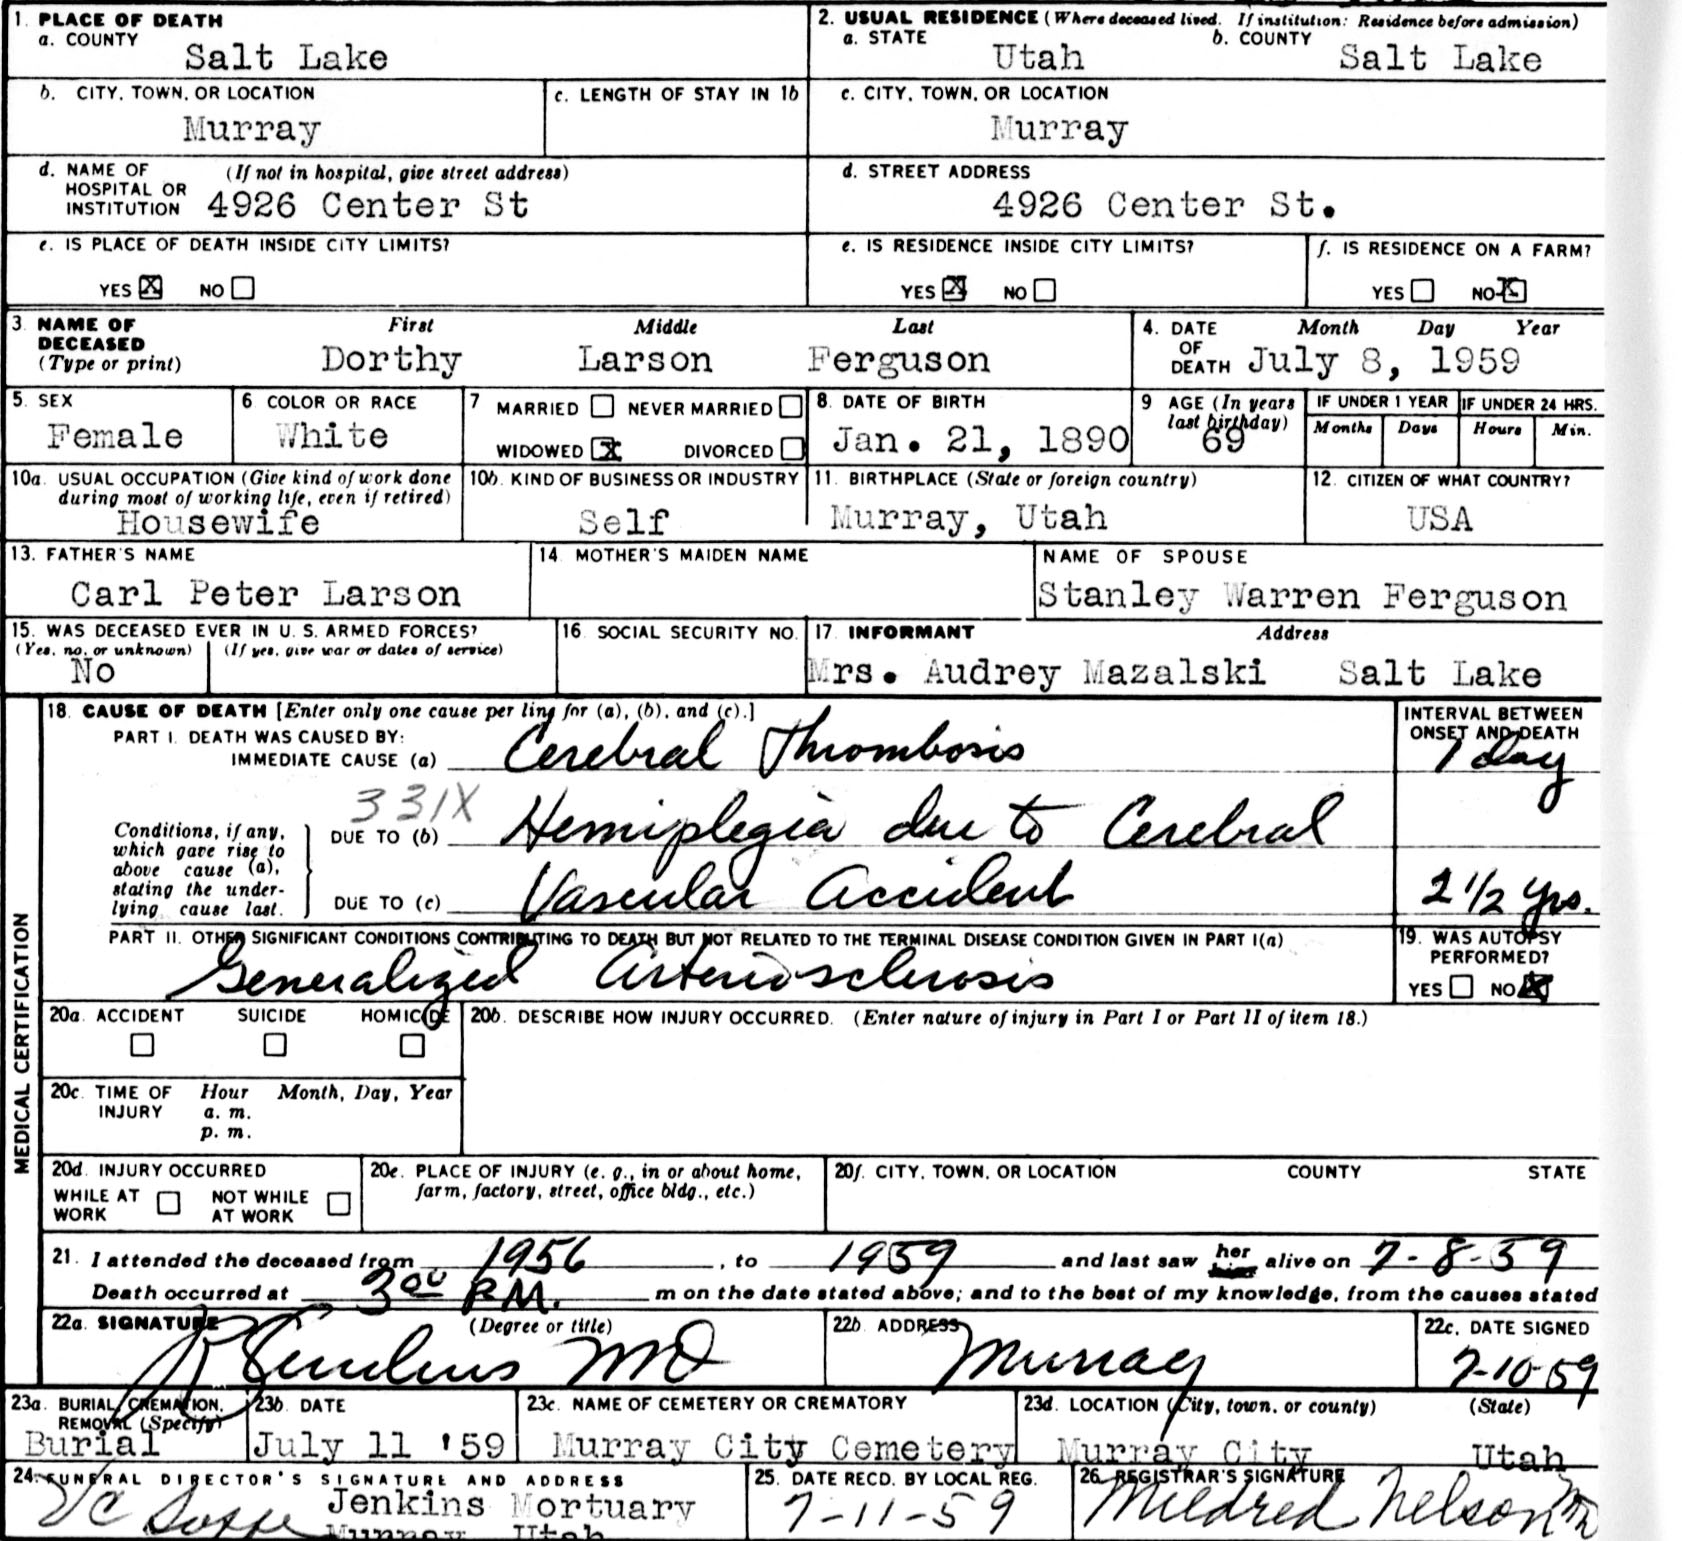 1. PLACE OF DEATH
a. COUNTY
Salt Lake
2. USUAL RESIDENCE (Where deceased lived. If institution: Residence before admission)
a. STATE b. COUNTY
Utah Salt Lake
b. CITY, TOWN, OR LOCATION
Murray
c. LENGTH OF STAY IN 1b
c. CITY, TOWN, OR LOCATION
Murray
d. NAME OF HOSPITAL OR INSTITUTION (If not in hospital, give street address)
4926 Center St
d. STREET ADDRESS
4926 Center St.
e. IS PLACE OF DEATH INSIDE CITY LIMITS?
YES X NO
e. IS RESIDENCE INSIDE CITY LIMITS?
YES X NO
f. IS RESIDENCE ON A FARM?
YES NO X
3. NAME OF DECEASED (Type or print)
First Middle Last
Dorthy Larson Ferguson
4. DATE OF DEATH Month Day Year
July 8, 1959
5. SEX
Female
6. COLOR OR RACE
White
7 MARRIED NEVER MARRIED
WIDOWED X DIVORCED
8. DATE OF BIRTH
Jan. 21, 1890
9 AGE (In years last birthday)
69
IF UNDER 1 YEAR IF UNDER 24 HRS.
Months Days Hours Min.
10a. USUAL OCCUPATION (Give kind of work done during most of working life, even if retired)
Housewife
10b. KIND OF BUSINESS OR INDUSTRY
Self
11. BIRTHPLACE (State or foreign country)
Murray, Utah
12. CITIZEN OF WHAT COUNTRY?
USA
13. FATHER'S NAME
Carl Peter Larson
14. MOTHER'S MAIDEN NAME
NAME OF SPOUSE
Stanley Warren Ferguson
15. WAS DECEASED EVER IN U. S. ARMED FORCES?
(Yes, no, or unknown) (If yes, give war or dates of service)
No
16. SOCIAL SECURITY NO.
17. INFORMANT Address
Mrs. Audrey Mazalski Salt Lake
MEDICAL CERTIFICATION
18. CAUSE OF DEATH [Enter only one cause per line for (a), (b), and (c).]
INTERVAL BETWEEN ONSET AND DEATH
PART I. DEATH WAS CAUSED BY:
IMMEDIATE CAUSE (a) Cerebral Thrombosis 1 day
331X
Conditions, if any, which gave rise to above cause (a), stating the underlying cause last.
DUE TO (b) Hemiplegia due to Cerebral
DUE TO (c) Vascular Accident 2 1/2 yrs.
PART II. OTHER SIGNIFICANT CONDITIONS CONTRIBUTING TO DEATH BUT NOT RELATED TO THE TERMINAL DISEASE CONDITION GIVEN IN PART I(a)
Generalized Arteriosclerosis
19. WAS AUTOPSY PERFORMED?
YES NO X
20a. ACCIDENT SUICIDE HOMICIDE
20b. DESCRIBE HOW INJURY OCCURRED. (Enter nature of injury in Part I or Part II of item 18.)
20c. TIME OF INJURY Hour Month, Day, Year
a. m.
p. m.
20d. INJURY OCCURRED
WHILE AT WORK NOT WHILE AT WORK
20e. PLACE OF INJURY (e. g., in or about home, farm, factory, street, office bldg., etc.)
20f. CITY, TOWN, OR LOCATION COUNTY STATE
21. I attended the deceased from 1956, to 1959 and last saw her alive on 7-8-59
Death occurred at 3 00 P.M. m on the date stated above; and to the best of my knowledge, from the causes stated
22a. SIGNATURE (Degree or title)
MD
22b. ADDRESS
Murray
22c. DATE SIGNED
7-10-59
23a. BURIAL, CREMATION, REMOVAL (Specify)
Burial
23b. DATE
July 11 '59
23c. NAME OF CEMETERY OR CREMATORY
Murray City Cemetery
23d. LOCATION (City, town, or county) (State)
Murray City Utah
24. FUNERAL DIRECTOR'S SIGNATURE AND ADDRESS
Jenkins Mortuary
Murray Utah
25. DATE RECD. BY LOCAL REG.
7-11-59
26. REGISTRAR'S SIGNATURE
Mildred Nelson